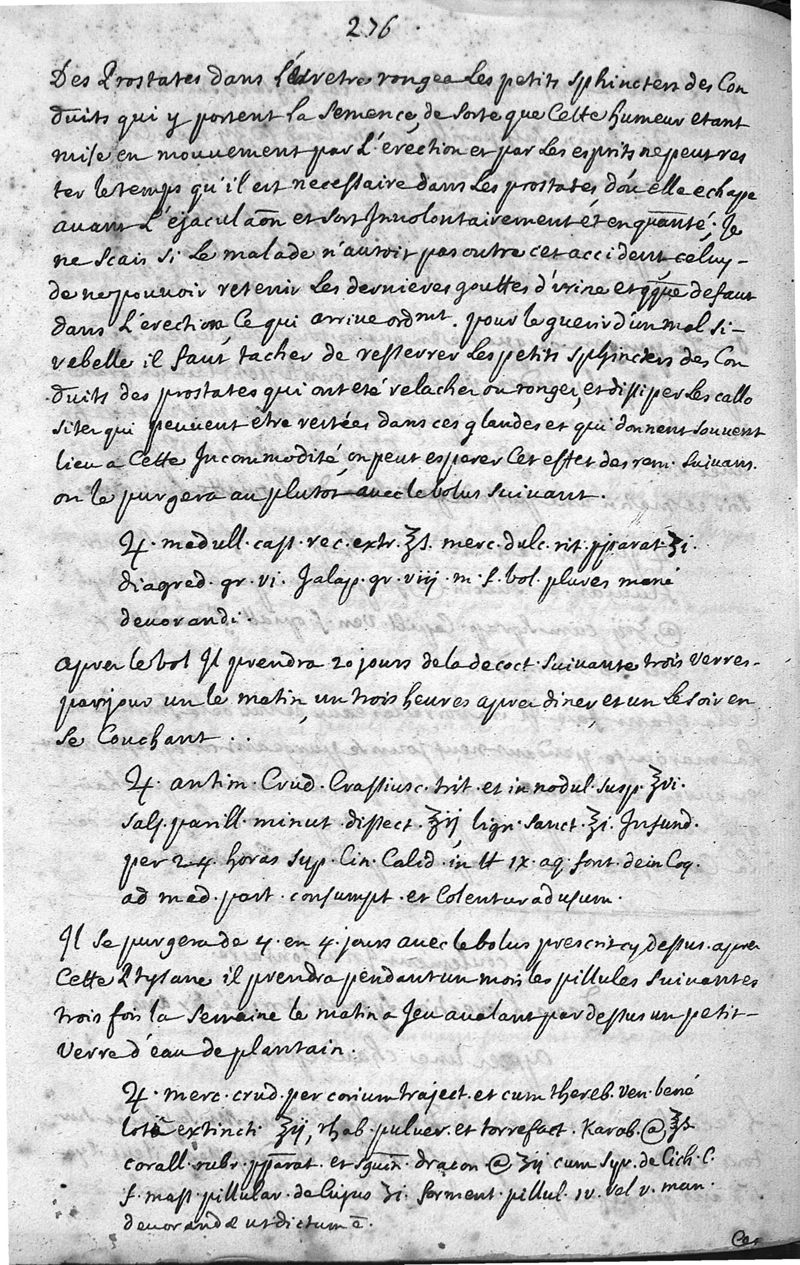 276
Des Prostates dans L'uretre rongea Les petits sphincters des Con
duits qui y portent La semence, de sorte que Cette humeur etant
mise en mouvement par L'erection et par Les esprits ne peut res
ter le temps qu'il est necessaire dans Les prostates d'ou elle echape
auant L'ejaculaõn et sort Inuolontairement et en quãnté; Je
ne scais si Le malade n'auroit pas outre cet accident celuy-
de ne pouuoir retenir Les dernieres gouttes d'urine et qque defaut
dans L'erection, Ce qui arriue ordnt. pour le guerir d'un mal si-
rebelle il faut tacher de resserrer Les petits sphincters des Con
duits des prostates qui ont eté relachez ou rongez, et dissiper Les callo
sitez qui peuuent etre restées dans ces glandes et qui donnent souuent
lieu a Cette Incommodité, on peut esperer Cet effet des rem. suiuans.
on le purgera au plutot auec le bolus suiuant.
♃. medull. cass. rec. extr. ʒs. merc. dulc. rit. pparat. ʒi.
diagred. gr. vi. Jalap. gr. viij. m. f. bol. plures mané
deuorandi.
apres le bol Il prendra 20 jours de la decoct. suiuante trois verres-
par jour un le matin un trois heures apres diner, et un Le soir en
se Couchant..
♃. antim. Crud. Crassiusc. trit. et in nodul. susp. ʒvi.
salsp. parill. minut. dissect. ʒij lign. sanct. ʒi. Infund.
per 24. horas sup. Cin. Calid. in ℔ ix. aq. font. dein Coq.
ad med. part. consumpt. et Colentur ad usum.
Il se purgera de 4. en 4. jours auec le bolus prescrit cy dessus. apres
Cette Ptysane il prendra pendant un mois les pillules suiuantes
trois fois la semaine le matin a Jeu aualant par dessus un petit-
verre d'eau de plantain.
♃. merc. crud. per corium traject. et cum thereb. ven. bené
extincti. ʒij, rhab. puluer. et torrefact. Karab. @ ʒs
corall. rubr. pparat. et sguin. dracon @ ʒij cum syr. de Cich. C.
f. mass pillular. de Cujus ʒi. forment. pillul. iv. vel v. man.
deuorandæ ut dictum ē.
Ces